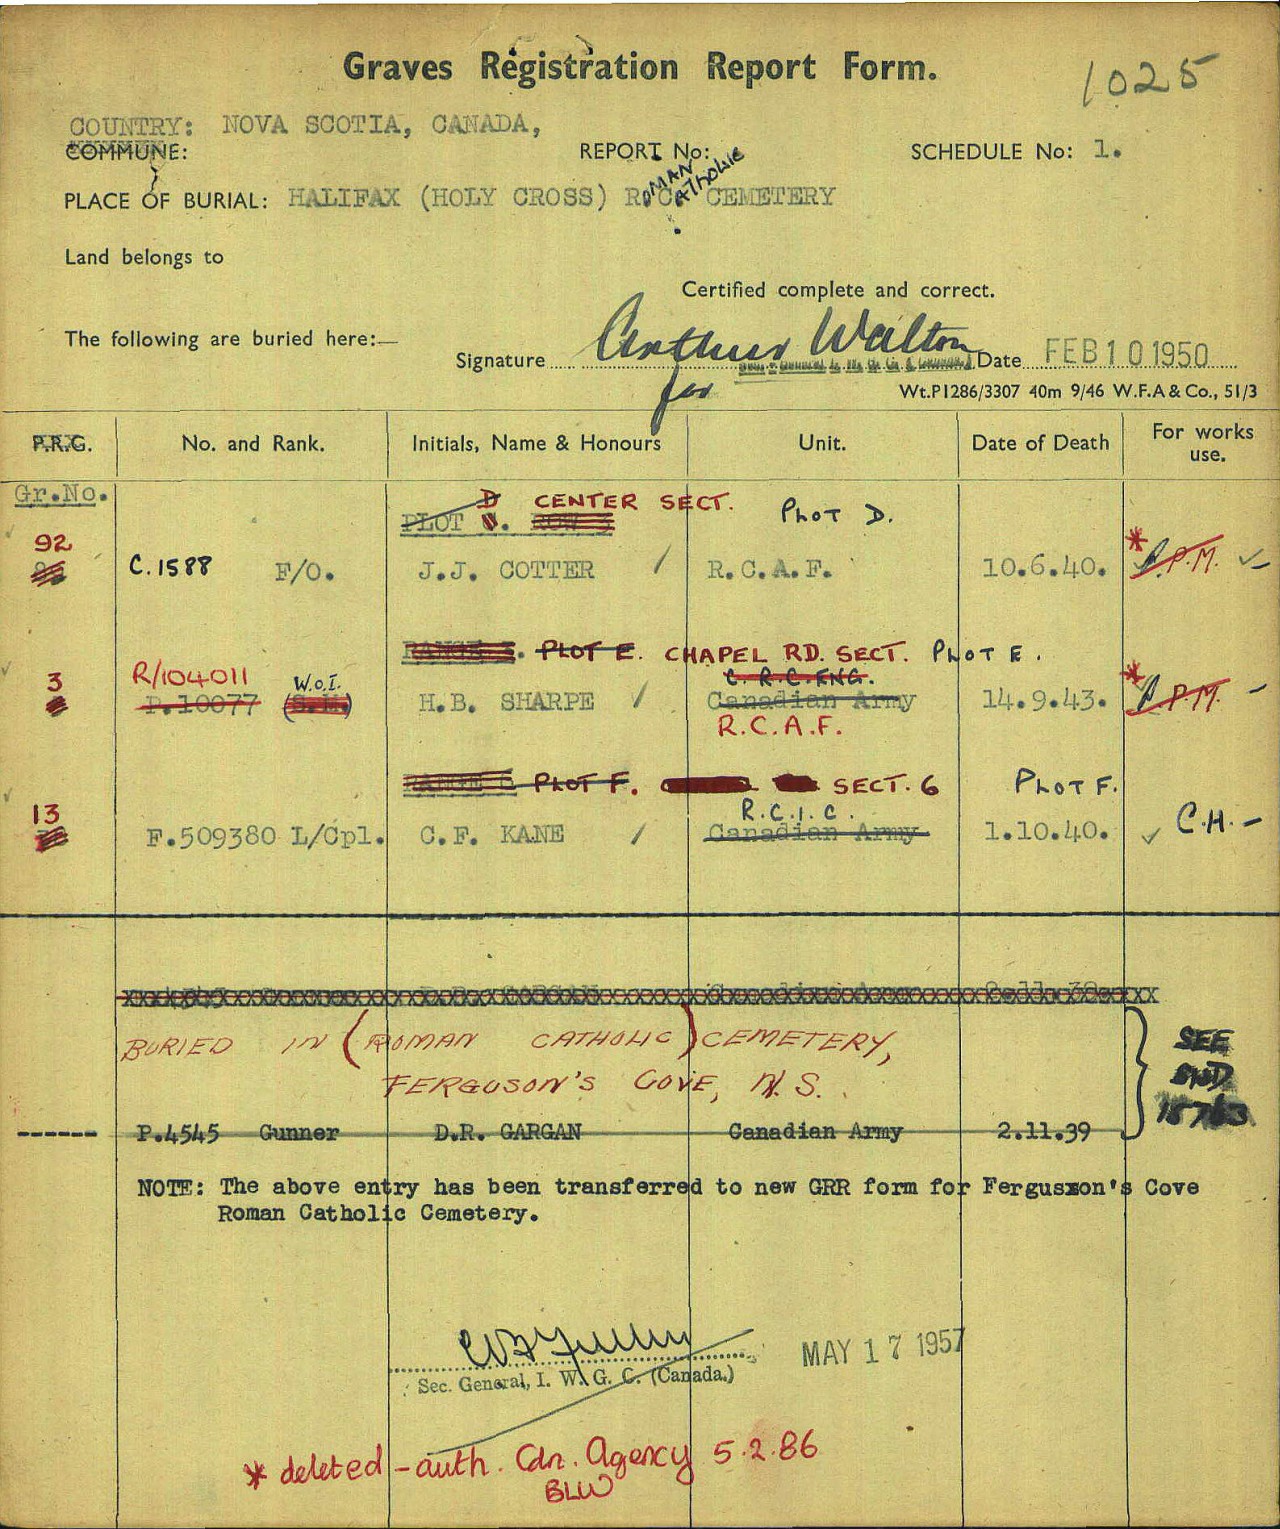 Graves Registration Report Form.
1025
COUNTRY: NOVA SCOTIA, CANADA,
COMMUNE:
REPORT No:
SCHEDULE No: 1.
PLACE OF BURIAL: HALIFAX (HOLY CROSS) R.C. CEMETERY
ROMAN CATHOLIC
Land belongs to
Certified complete and correct.
The following are buried here:—
Signature Arthur Walton Date FEB 10 1950
for
Wt.P1286/3307 40m 9/46 W.F.A & Co., 51/3
P.R.G. No. and Rank. Initials, Name & Honours Unit. Date of Death For works use.
Gr.No.
PLOT D CENTER SECT. PLOT D.
92 C.1588 F/O. J.J. COTTER / R.C.A.F. 10.6.40. * P.M.
PLOT E. CHAPEL RD. SECT. PLOT E.
R/104011 W.O.I. C. R.C.ENG.
3 P.10077 (S.M.) H.B. SHARPE / Canadian Army 14.9.43. * P.M. –
R.C.A.F.
PLOT F. SECT. 6 PLOT F.
R.C.I.C.
13 F.509380 L/Cpl. C.F. KANE / Canadian Army 1.10.40. C.H. –
BURIED IN (ROMAN CATHOLIC) CEMETERY,
FERGUSON'S COVE, N.S.
SEE
15763
P.4545 Gunner D.R. GARGAN Canadian Army 2.11.39
NOTE: The above entry has been transferred to new GRR form for Ferguson's Cove
Roman Catholic Cemetery.
MAY 17 1957
Sec. General, I. W. G. C. (Canada.)
* deleted – auth. Cdn. Agency 5.2.86
BLW